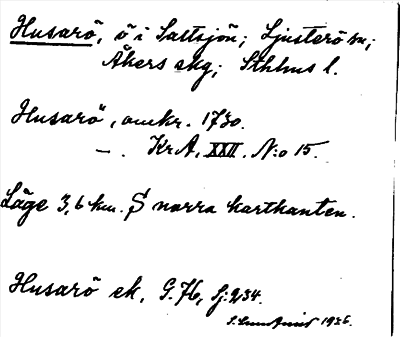 Husarö, ö i Saltsjön; Ljusterö sn;
Åkers skg; Sthlms l.
Husarö, omkr. 1730.
— . KrA. XXII. N:o 15.
Läge 3,6 km. S norra kartkanten.
Husarö ek. G. 76, Sj: 234.
1926.